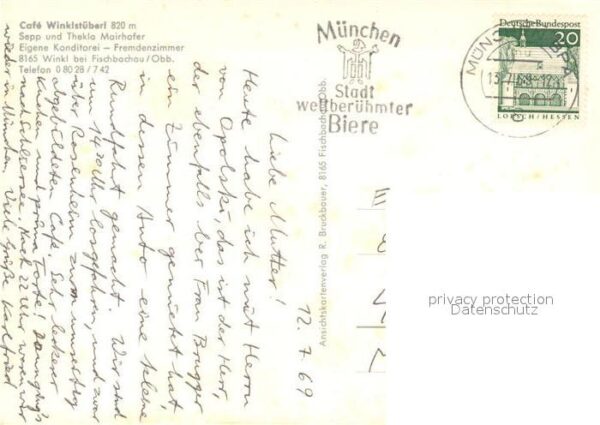 Café Winklstüberl 820 m
Sepp und Thekla Mairhofer
Eigene Konditorei – Fremdenzimmer
8165 Winkl bei Fischbachau/Obb.
Telefon 0 80 28 / 7 42
München
Stadt
weltberühmter
Biere
MÜNCHEN
13.7.69
Deutsche Bundespost
20
LORSCH/HESSEN
Ansichtskartenverlag R. Bruckbauer, 8165 Fischbachau/Obb.
12. 7. 69
Liebe Mutter!
Heute habe ich mit Herrn
von Opolski, das ist der Herr,
der ebenfalls bei Frau Brugger
ein Zimmer gemietet hat,
in dessen Auto eine kleine
Rundfahrt gemacht. Wir sind
um 14.20 Uhr losgefahren, und zwar
über Rosenheim zum umseitig
abgebildeten Café. Sehr leckerer
Kuchen und prima Torte! Dann ging's
nach Schliersee. Nach 22 Uhr waren wir
wieder in München. Viele Grüße Karlfried
privacy protection
Datenschutz